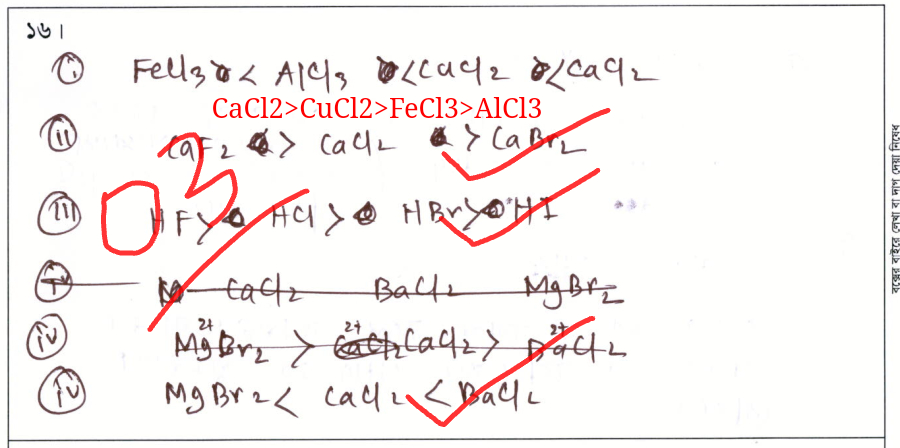 ১৬।
(i) FeCl3 < AlCl3 < CuCl2 < CaCl2
CaCl2>CuCl2>FeCl3>AlCl3
(ii) CaF2 > CaCl2 > CaBr2
(iii) HF > HCl > HBr > HI
(iv) CaCl2 BaCl2 MgBr2
(iv) Mg²⁺Br2 > Ca²⁺Cl2 CaCl2 > Ba²⁺Cl2
(iv) MgBr2 < CaCl2 < BaCl2
বক্সের বাইরে লেখা বা দাগ দেয়া নিষেধ